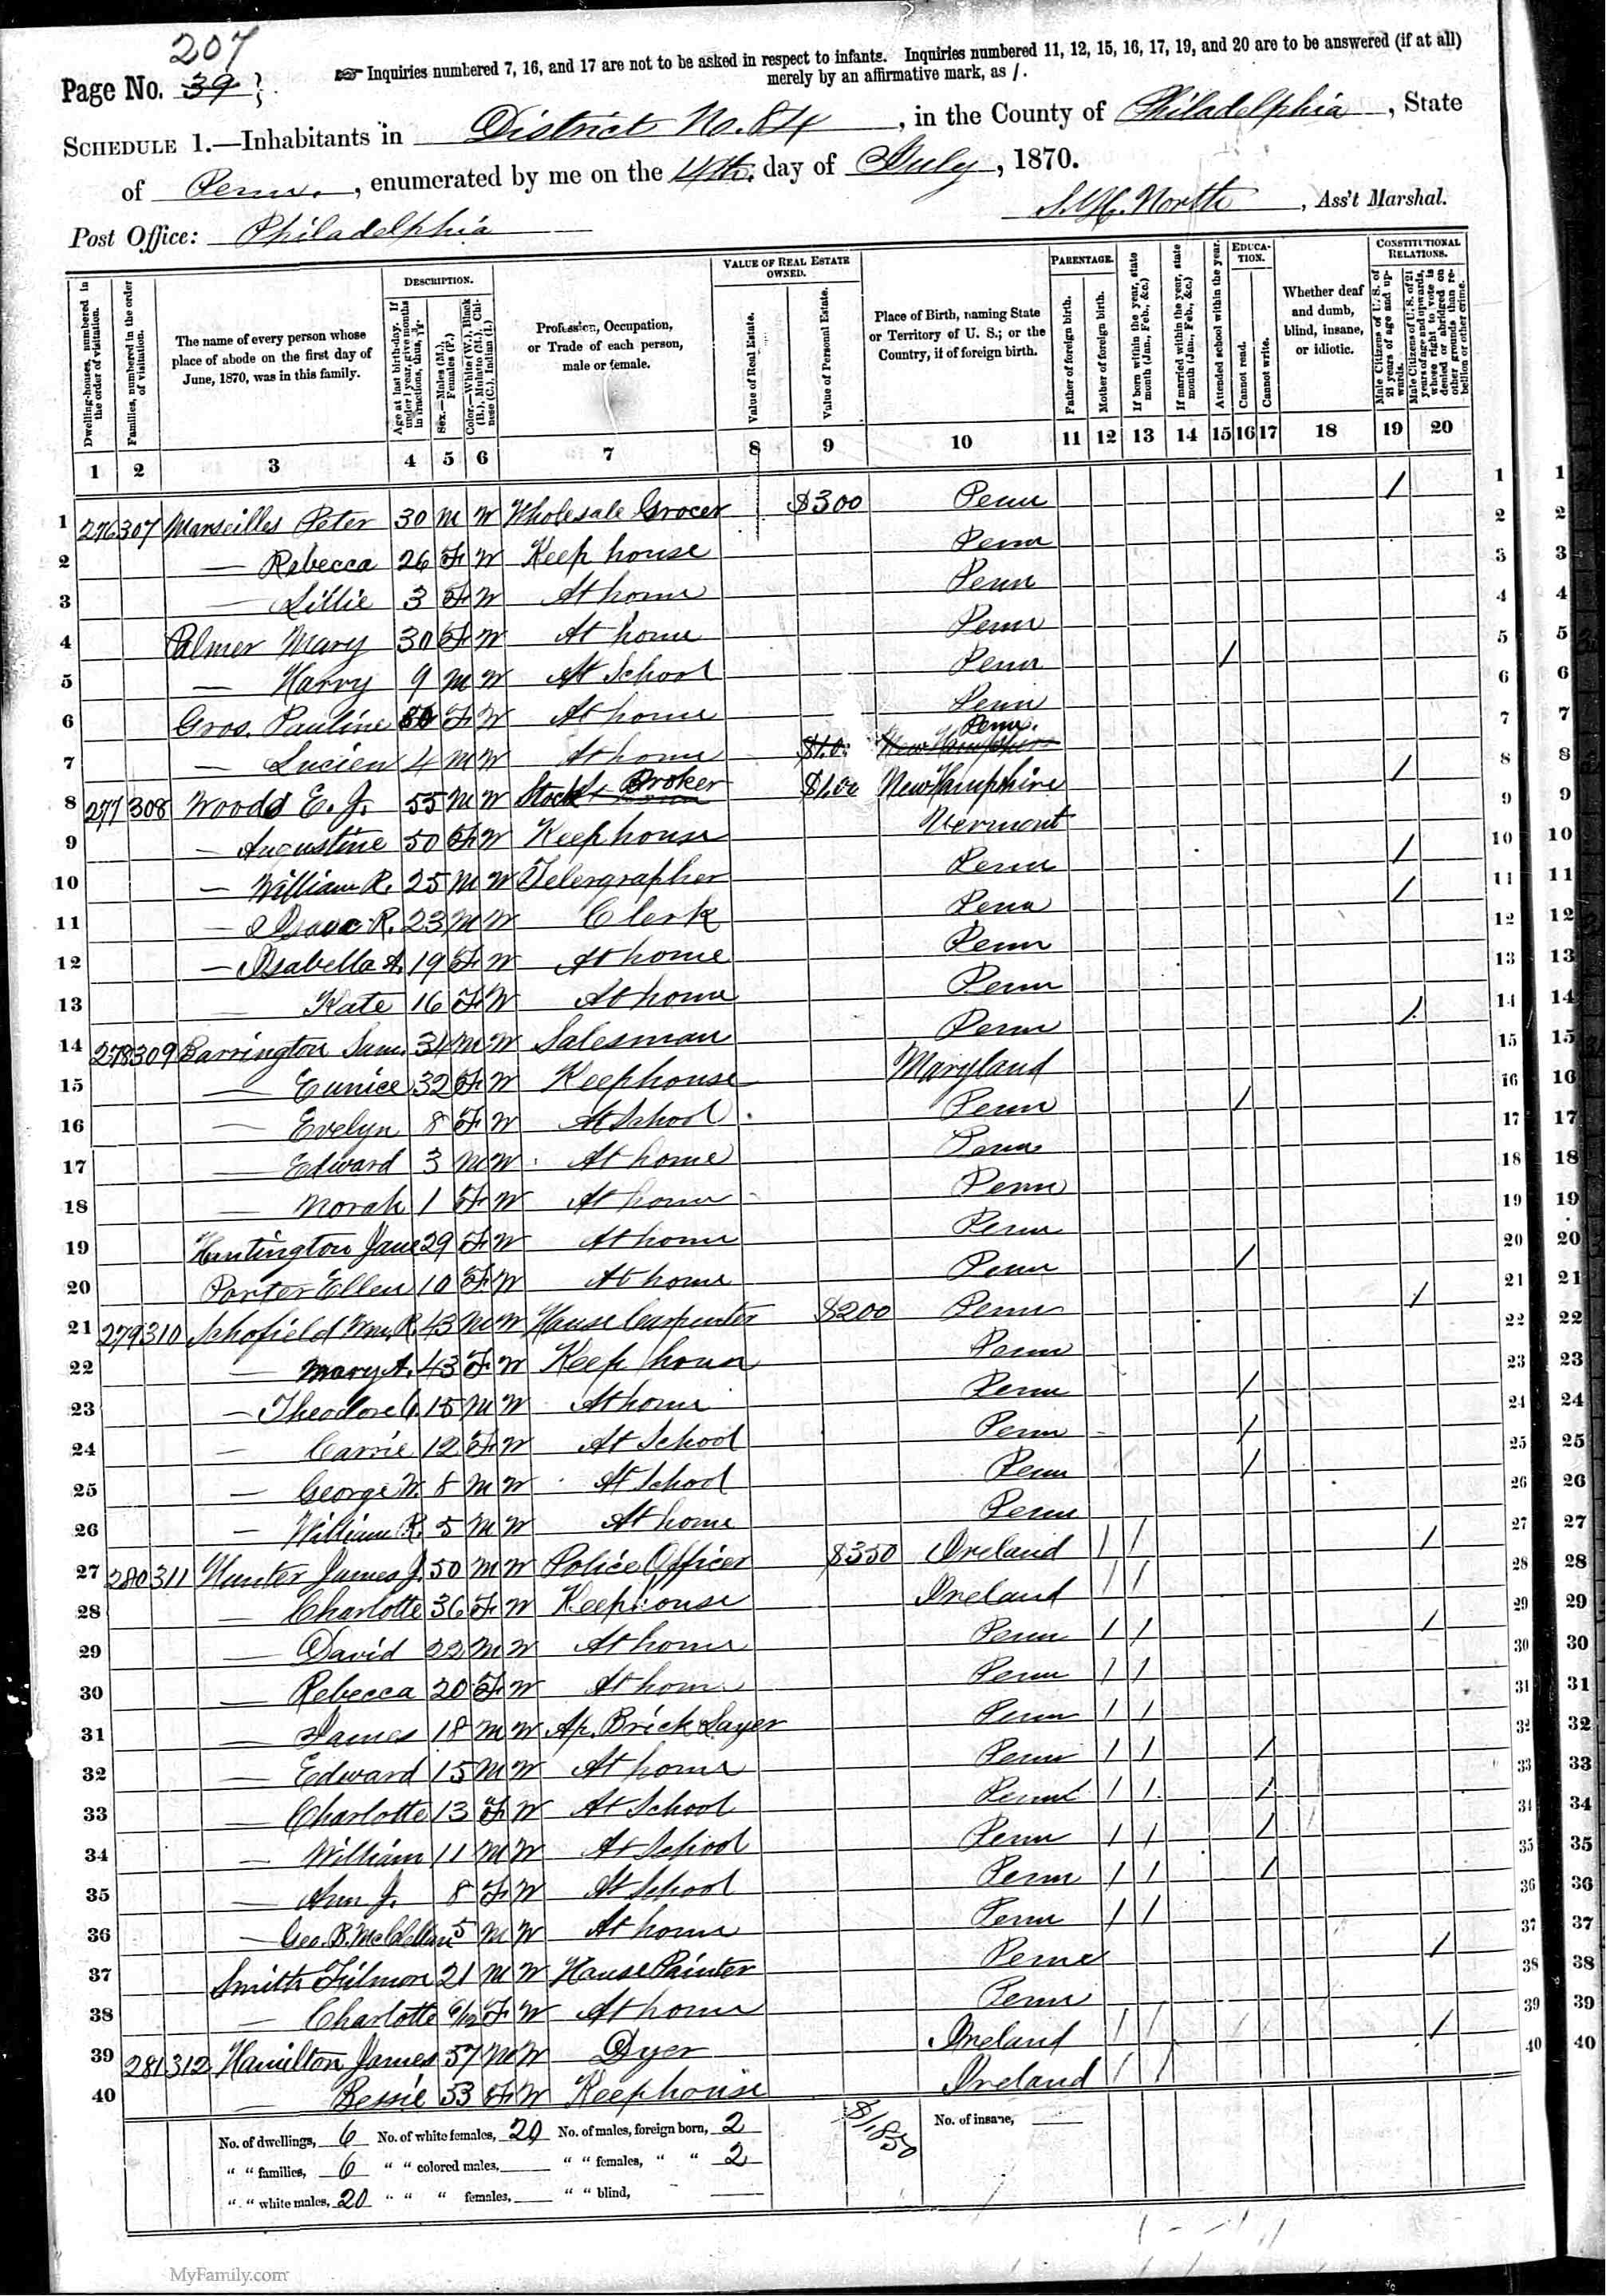 207
Page No. 39
☞ Inquiries numbered 7, 16, and 17 are not to be asked in respect to infants. Inquiries numbered 11, 12, 15, 16, 17, 19, and 20 are to be answered (if at all)
merely by an affirmative mark, as /.
SCHEDULE 1.—Inhabitants in District No. 84, in the County of Philadelphia, State
of Penn., enumerated by me on the 4th. day of July, 1870.
Post Office: Philadelphia
North, Ass't Marshal.
DESCRIPTION.
VALUE OF REAL ESTATE OWNED.
PARENTAGE.
EDUCATION.
CONSTITUTIONAL RELATIONS.
Dwelling-houses, numbered in the order of visitation.
Families, numbered in the order of visitation.
The name of every person whose place of abode on the first day of June, 1870, was in this family.
Age at last birth-day. If under 1 year, give months in fractions, thus,
Sex.—Males (M.), Females (F.)
Color.—White (W.), Black (B.), Mulatto (M.), Chinese (C.), Indian (I.)
Profession, Occupation, or Trade of each person, male or female.
Value of Real Estate.
Value of Personal Estate.
Place of Birth, naming State or Territory of U. S.; or the Country, if of foreign birth.
Father of foreign birth.
Mother of foreign birth.
If born within the year, state month (Jan., Feb., &c.)
If married within the year, state month (Jan., Feb., &c.)
Attended school within the year.
Cannot read.
Cannot write.
Whether deaf and dumb, blind, insane, or idiotic.
Male Citizens of U. S. of 21 years of age and upwards.
Male Citizens of U. S. of 21 years of age and upwards, whose right to vote is denied or abridged on other grounds than rebellion or other crime.
1 2 3 4 5 6 7 8 9 10 11 12 13 14 15 16 17 18 19 20
1 276 307 Marseilles Peter 30 M W Wholesale Grocer $300 Penn / 1 1
2 — Rebecca 26 F W Keep house Penn 2 2
3 — Lillie 3 F W At home Penn 3 3
4 Palmer Mary 30 F W At home Penn 4 4
5 — Harry 9 M W At School Penn / 5 5
6 Gros. Pauline F W At home Penn 6 6
7 — Lucien 4 M W At home New Hampshire Penn. 7 7
8 277 308 Woods E. J. 55 M W Stock Broker New Hampshire / 8 8
9 — Augustine 50 F W Keep house Vermont 9 9
10 — William R. 25 M W Telegrapher Penn / 10 10
11 — Isaac R. 23 M W Clerk Penn / 11 11
12 — Isabella A. 19 F W At home Penn 12 12
13 — Kate 16 F W At home Penn 13 13
14 278 309 Barrington Sam. 34 M W Salesman Penn / 14 14
15 — Eunice 32 F W Keep house Maryland 15 15
16 — Evelyn 8 F W At School Penn / 16 16
17 — Edward 3 M W At home Penn 17 17
18 — Norah 1 F W At home Penn 18 18
19 Huntington Jane 29 F W At home Penn 19 19
20 Porter Ellen 10 F W At home Penn / 20 20
21 279 310 Schofield Wm. R. 43 M W House Carpenter $200 Penn / 21 21
22 — Mary A. 43 F W Keep house Penn 22 22
23 — Theodore 15 M W At home Penn / 23 23
24 — Carrie 12 F W At School Penn / 24 24
25 — George W. 8 M W At School Penn / 25 25
26 — William R. 5 M W At home Penn 26 26
27 280 311 Hunter James J. 50 M W Police Officer $350 Ireland / / / 27 27
28 — Charlotte 36 F W Keep house Ireland / / 28 28
29 — David 22 M W At home Penn / / / 29 29
30 — Rebecca 20 F W At home Penn / / 30 30
31 — James 18 M W Ap. Brick Layer Penn / / 31 31
32 — Edward 15 M W At home Penn / / / 32 32
33 — Charlotte 13 F W At School Penn / / / 33 33
34 — William 11 M W At School Penn / / / 34 34
35 — Ann J. 8 F W At School Penn / / / 35 35
36 — Geo. B. McClellan 5 M W At home Penn / / 36 36
37 Smith Filmore 21 M W House Painter Penn / 37 37
38 — Charlotte 6/12 F W At home Penn 38 38
39 281 312 Hamilton James 57 M W Dyer Ireland / / / 39 39
40 — Bessie 53 F W Keep house Ireland / / 40 40
No. of dwellings, 6 No. of white females, 20 No. of males, foreign born, 2 $1,850 No. of insane,
" " families, 6 " " colored males, " " females, " " 2
" " white males, 20 " " " females, " " blind,
MyFamily.com